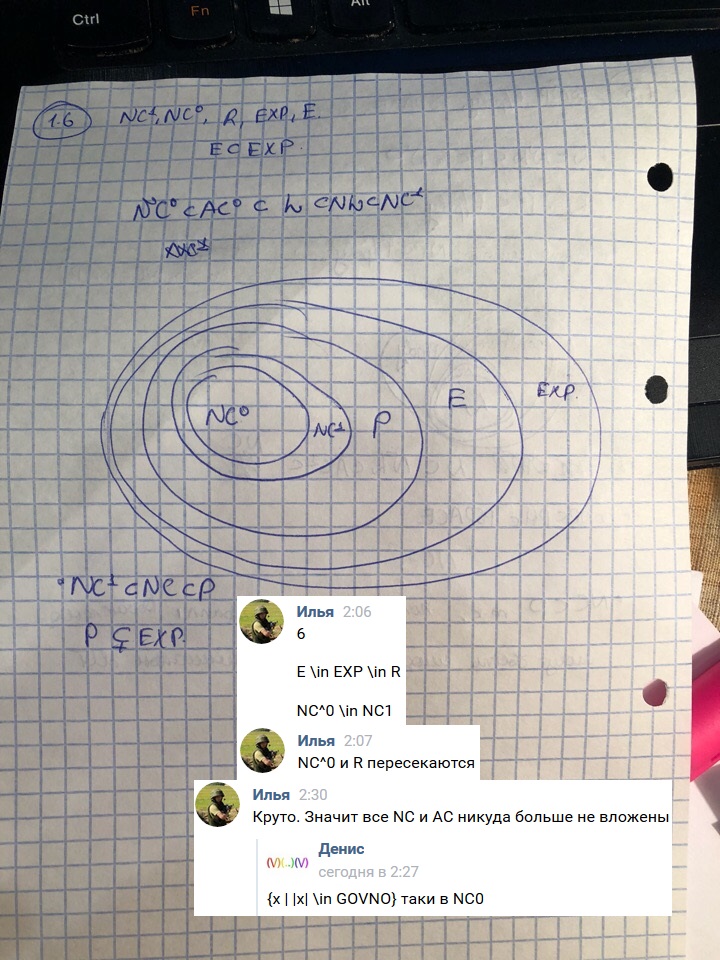 Ctrl
Fn
Alt
1.6
NC¹, NC⁰, R, EXP, E.
E ⊂ EXP.
NC⁰ ⊂ AC⁰ ⊂ L ⊂ NL ⊂ NC¹
NC⁰
NC¹
P
E
EXP.
NC¹ ⊂ NC ⊂ P
P ⊊ EXP.
Илья 2:06
6
E \in EXP \in R
NC^0 \in NC1
Илья 2:07
NC^0 и R пересекаются
Илья 2:30
Круто. Значит все NC и AC никуда больше не вложены
(\/)(..)(\/) Денис
сегодня в 2:27
{x | |x| \in GOVNO} таки в NC0